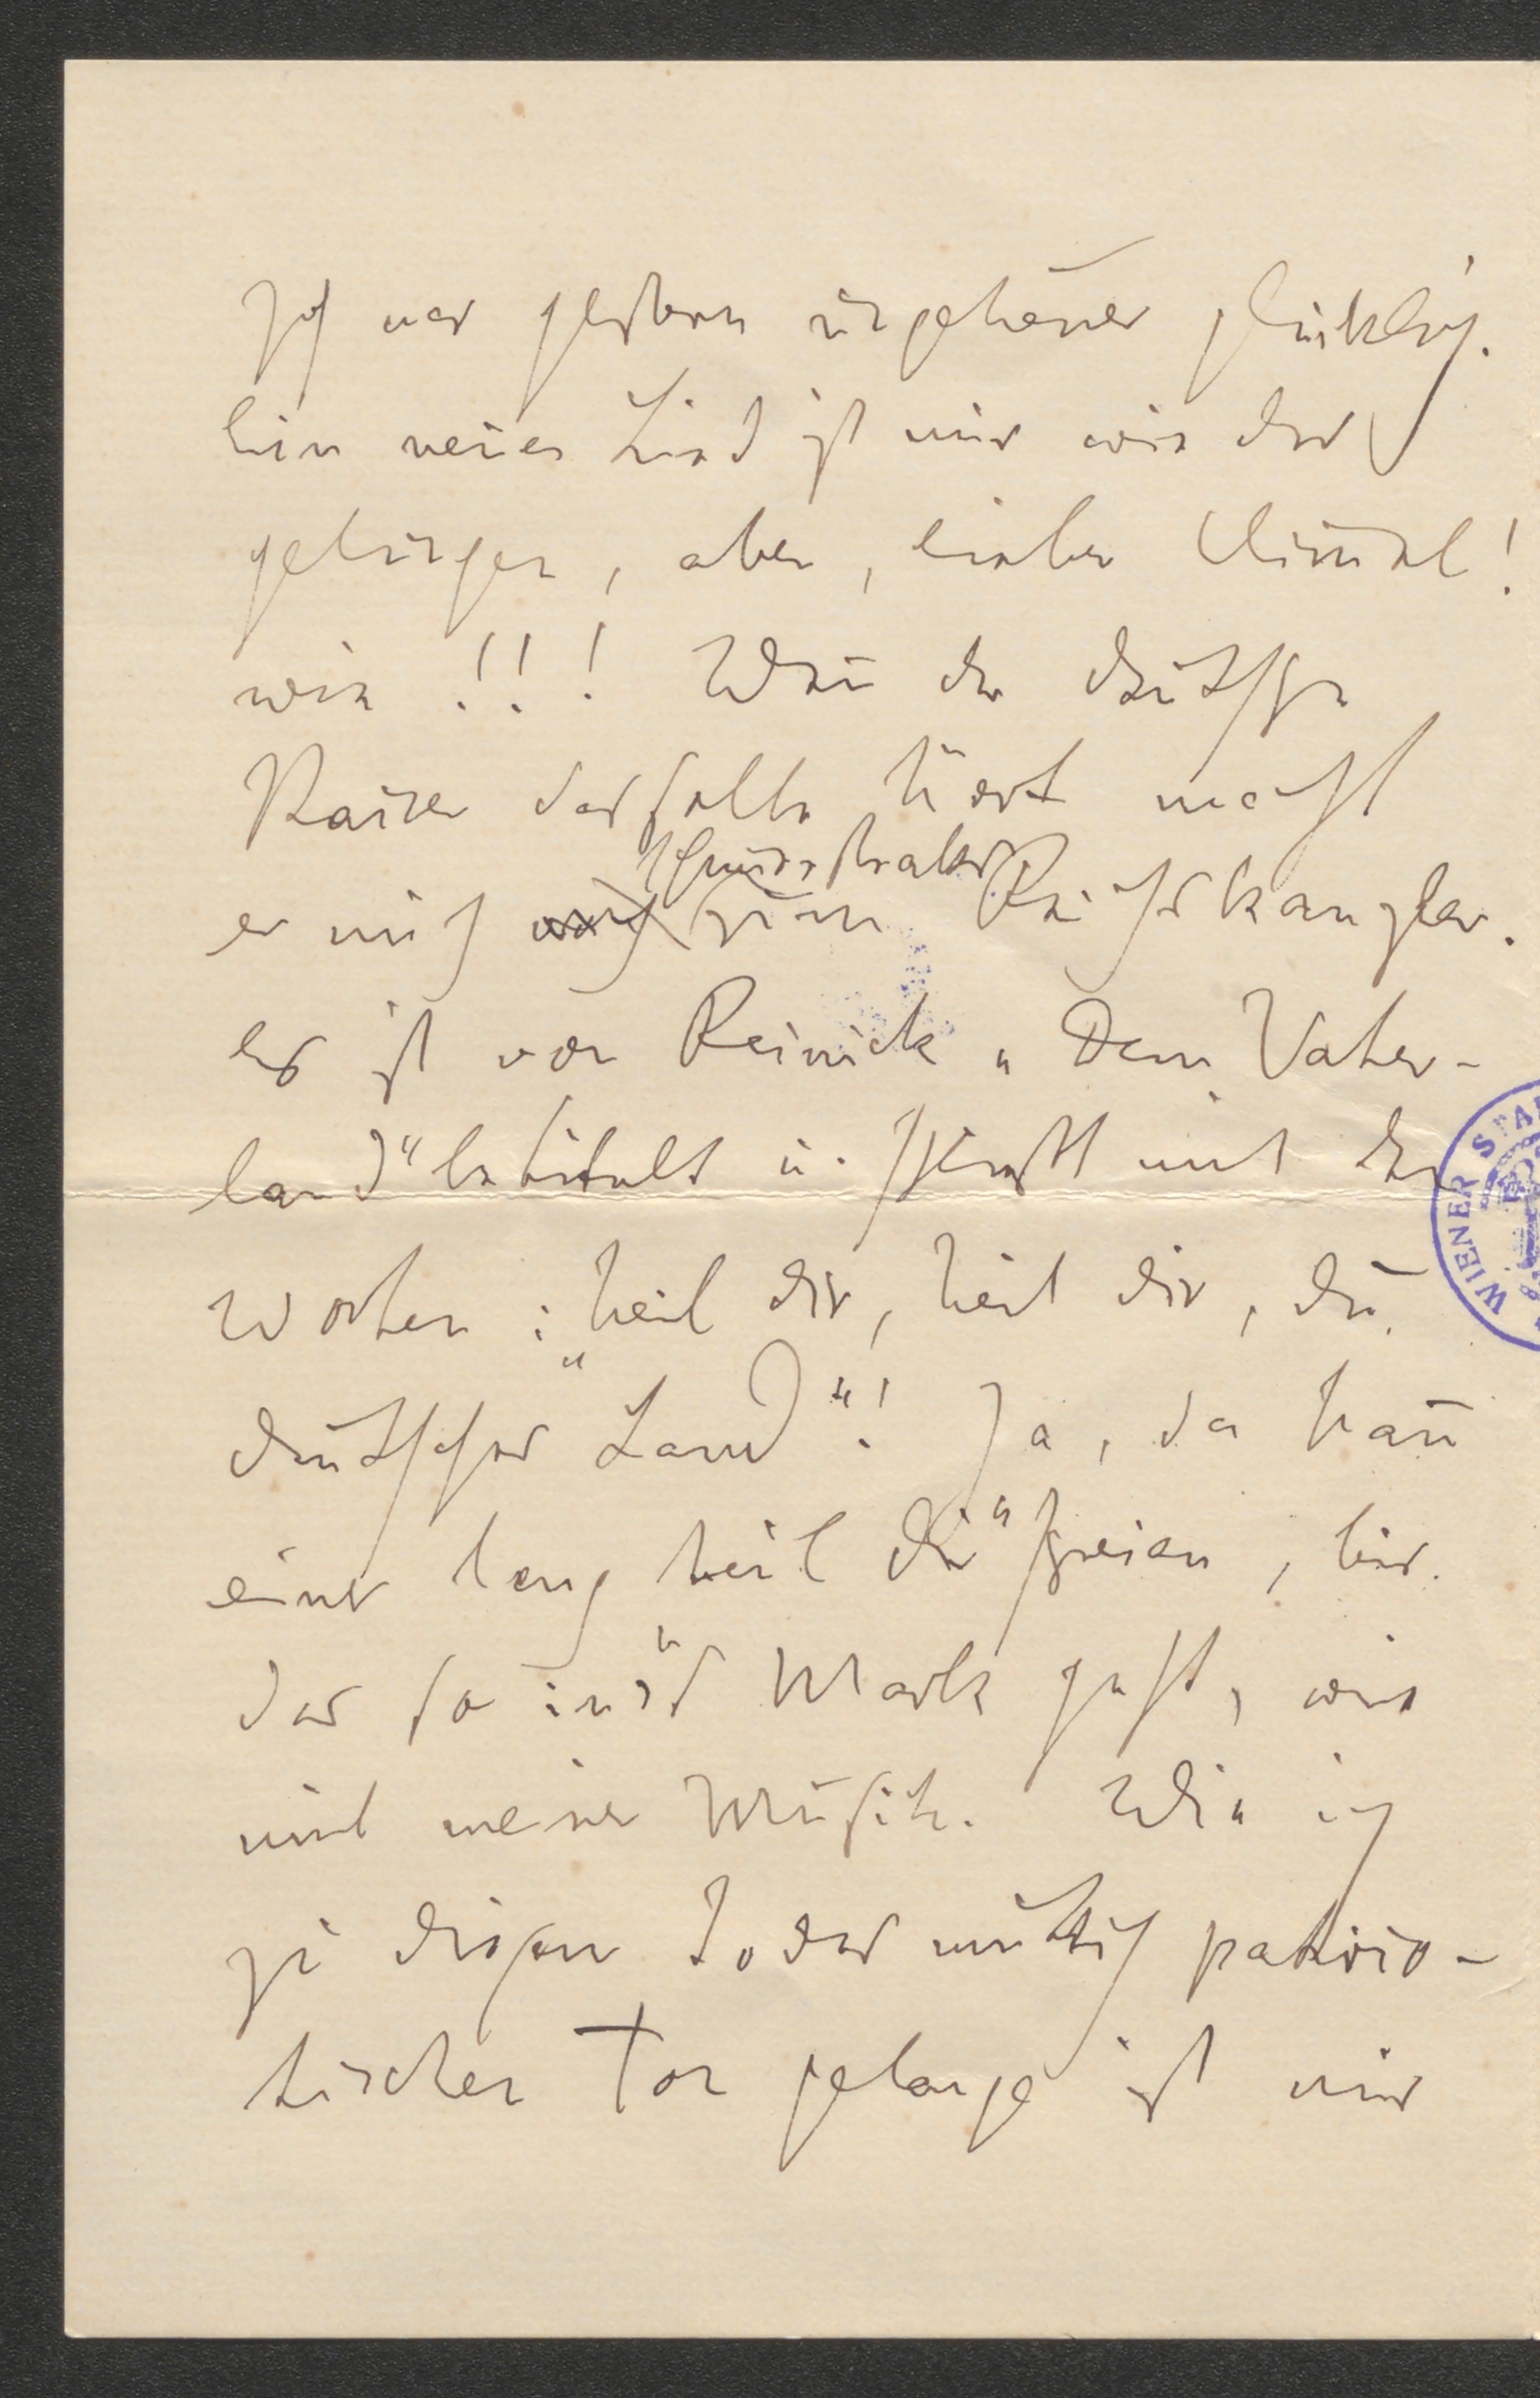 Ich war gestern ungeheuer glücklich.
Ein neues Lied ist mir wieder
gelungen, aber, lieber Himmel!
wie!!! Wenn der deutsche
Kaiser dasselbe hört macht
er mich schnurstraks zum Reichskanzler.
es ist von Reinick „Dem Vater-
land“ betitelt u. schließt mit den
Worten: „heil dir, heil dir, du
deutsches Land“! Ja, da kann
einer lang „heil dir“ schreien, bis
das so in's Mark geht, wie
mit meiner Musik. Wie ich
zu diesem todesmuthig patrio-
tischen Ton gelange ist mir
WIENER STA